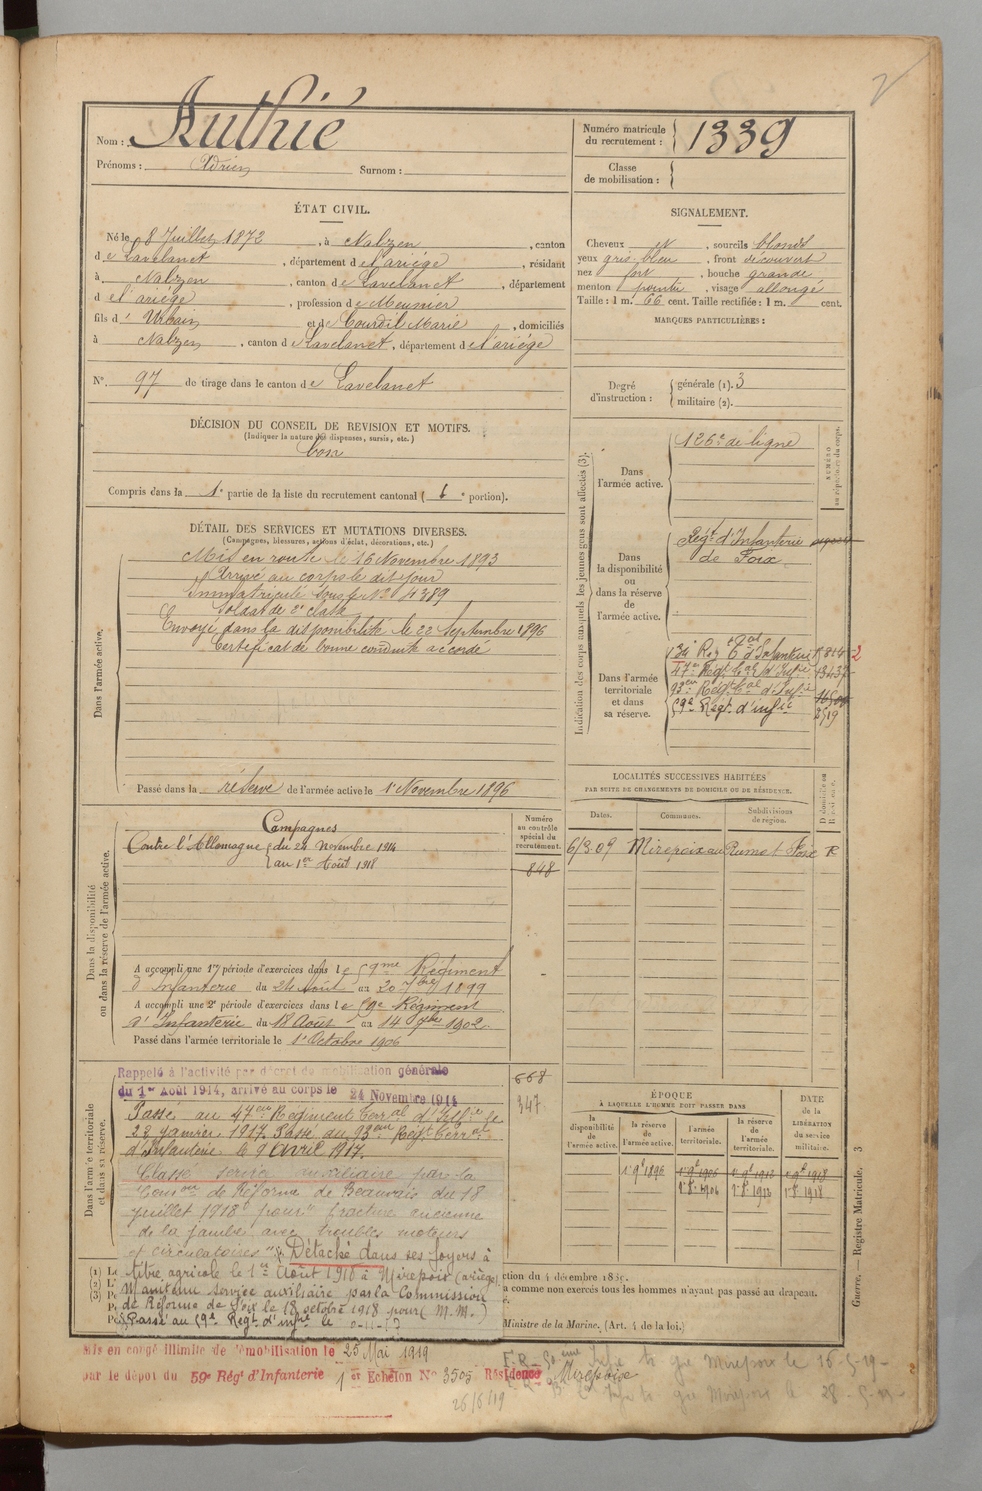 2
Nom : Authié
Prénoms : Adrien Surnom :
Numéro matricule du recrutement : 1339
Classe de mobilisation :
ÉTAT CIVIL.
Né le 8 Juillet 1872, à Nalzen, canton
de Lavelanet, département de l'ariège, résidant
à Nalzen, canton de Lavelanet, département
de l'ariège, profession de Meunier
fils d' Urbain et de Courdil Marie, domiciliés
à Nalzen, canton de Lavelanet, département de l'ariège
N° 97 de tirage dans le canton de Lavelanet
SIGNALEMENT.
Cheveux et, sourcils blonds
yeux gris-bleu, front découvert
nez fort, bouche grande
menton pointu, visage allongé
Taille : 1 m. 66 cent. Taille rectifiée : 1 m. cent.
MARQUES PARTICULIÈRES :
Degré d'instruction : générale (1). 3
militaire (2).
DÉCISION DU CONSEIL DE REVISION ET MOTIFS.
(Indiquer la nature des dispenses, sursis, etc.)
bon
Compris dans la 1e partie de la liste du recrutement cantonal ( e portion).
DÉTAIL DES SERVICES ET MUTATIONS DIVERSES.
(Campagnes, blessures, actions d'éclat, décorations, etc.)
Dans l'armée active.
Mis en route le 16 Novembre 1893
Arrivé au corps le dit jour
Immatriculé sous le N° 4389
Soldat de 2e classe
Envoyé dans la disponibilité le 22 Septembre 1896
Certificat de bonne conduite accordé
Passé dans la réserve de l'armée active le 1er Novembre 1896
Indication des corps auxquels les jeunes gens sont affectés (3).
NUMÉRO au répertoire du corps.
Dans l'armée active.
126e de ligne
Dans la disponibilité ou dans la réserve de l'armée active.
Régt d'Infanterie
de Foix
Dans l'armée territoriale et dans sa réserve.
134 Reg Tal d'Infanterie
47e Régt Tal d'Infie
93eme Régt Tal d'Infie
59e Régt d'infie 2519
LOCALITÉS SUCCESSIVES HABITÉES
PAR SUITE DE CHANGEMENTS DE DOMICILE OU DE RÉSIDENCE.
Dates. Communes. Subdivisions de région.
6/3-09 Mirepoix Foix R
Dans la disponibilité ou dans la réserve de l'armée active.
Numéro au contrôle spécial du recrutement.
848
Campagnes
Contre l'Allemagne du 24 novembre 1914
au 1er Août 1918
A accompli une 1re période d'exercices dans le 59me Régiment
d'Infanterie du 24 Août au 20 7bre 1899
A accompli une 2e période d'exercices dans le 59e Régiment
d'Infanterie du 18 Août au 14 7bre 1902.
Passé dans l'armée territoriale le 1er Octobre 1906
Dans l'armée territoriale et dans sa réserve.
668
347
Rappelé à l'activité par décret de mobilisation générale
du 1er Août 1914, arrivé au corps le 24 Novembre 1914
Passé au 47eme Régiment Terral d'Infie le
22 janvier 1917. Passé au 93eme Régt Terral
d'Infanterie le 9 Avril 1917.
Classé service auxiliaire par la
Comon de Réforme de Beauvais du 18
juillet 1918 pour "fracture ancienne
de la jambe avec troubles moteurs
et circulatoires". Détaché dans ses foyers à
titre agricole le 1er Août 1918 à Mirepoix (ariège)
Maintenu service auxiliaire par la Commission
de Réforme de Foix le 18 octobre 1918 pour (M. M.)
Passé au 59e Régt d'infie le
ÉPOQUE
À LAQUELLE L'HOMME DOIT PASSER DANS
la disponibilité de l'armée active.
la réserve de l'armée active.
l'armée territoriale.
la réserve de l'armée territoriale.
DATE de la LIBÉRATION du service militaire.
1er 9bre 1896 1er 9bre 1906 1er 9bre 1912 1er 9bre 1918
1er 8bre 1906 1er 8bre 1912 1er 8bre 1918
ction du 4 décembre 1889.
a comme non exercés tous les hommes n'ayant pas passé au drapeau.
Ministre de la Marine. (Art. 4 de la loi.)
Guerre. — Registre Matricule. 3
Mis en congé illimité de démobilisation le 25 Mai 1919
par le dépôt du 59e Régt d'Infanterie 1er Echelon N° 3505 Résidence Mirepoix
26/6/19